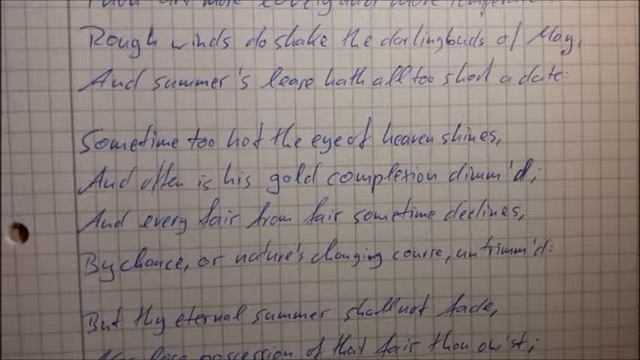 Thou art more lovely and more temperate:
Rough winds do shake the darling buds of May,
And summer's lease hath all too short a date:
Sometime too hot the eye of heaven shines,
And often is his gold complexion dimm'd;
And every fair from fair sometime declines,
By chance, or nature's changing course, untrimm'd:
But thy eternal summer shall not fade,
Nor lose possession of that fair thou ow'st;